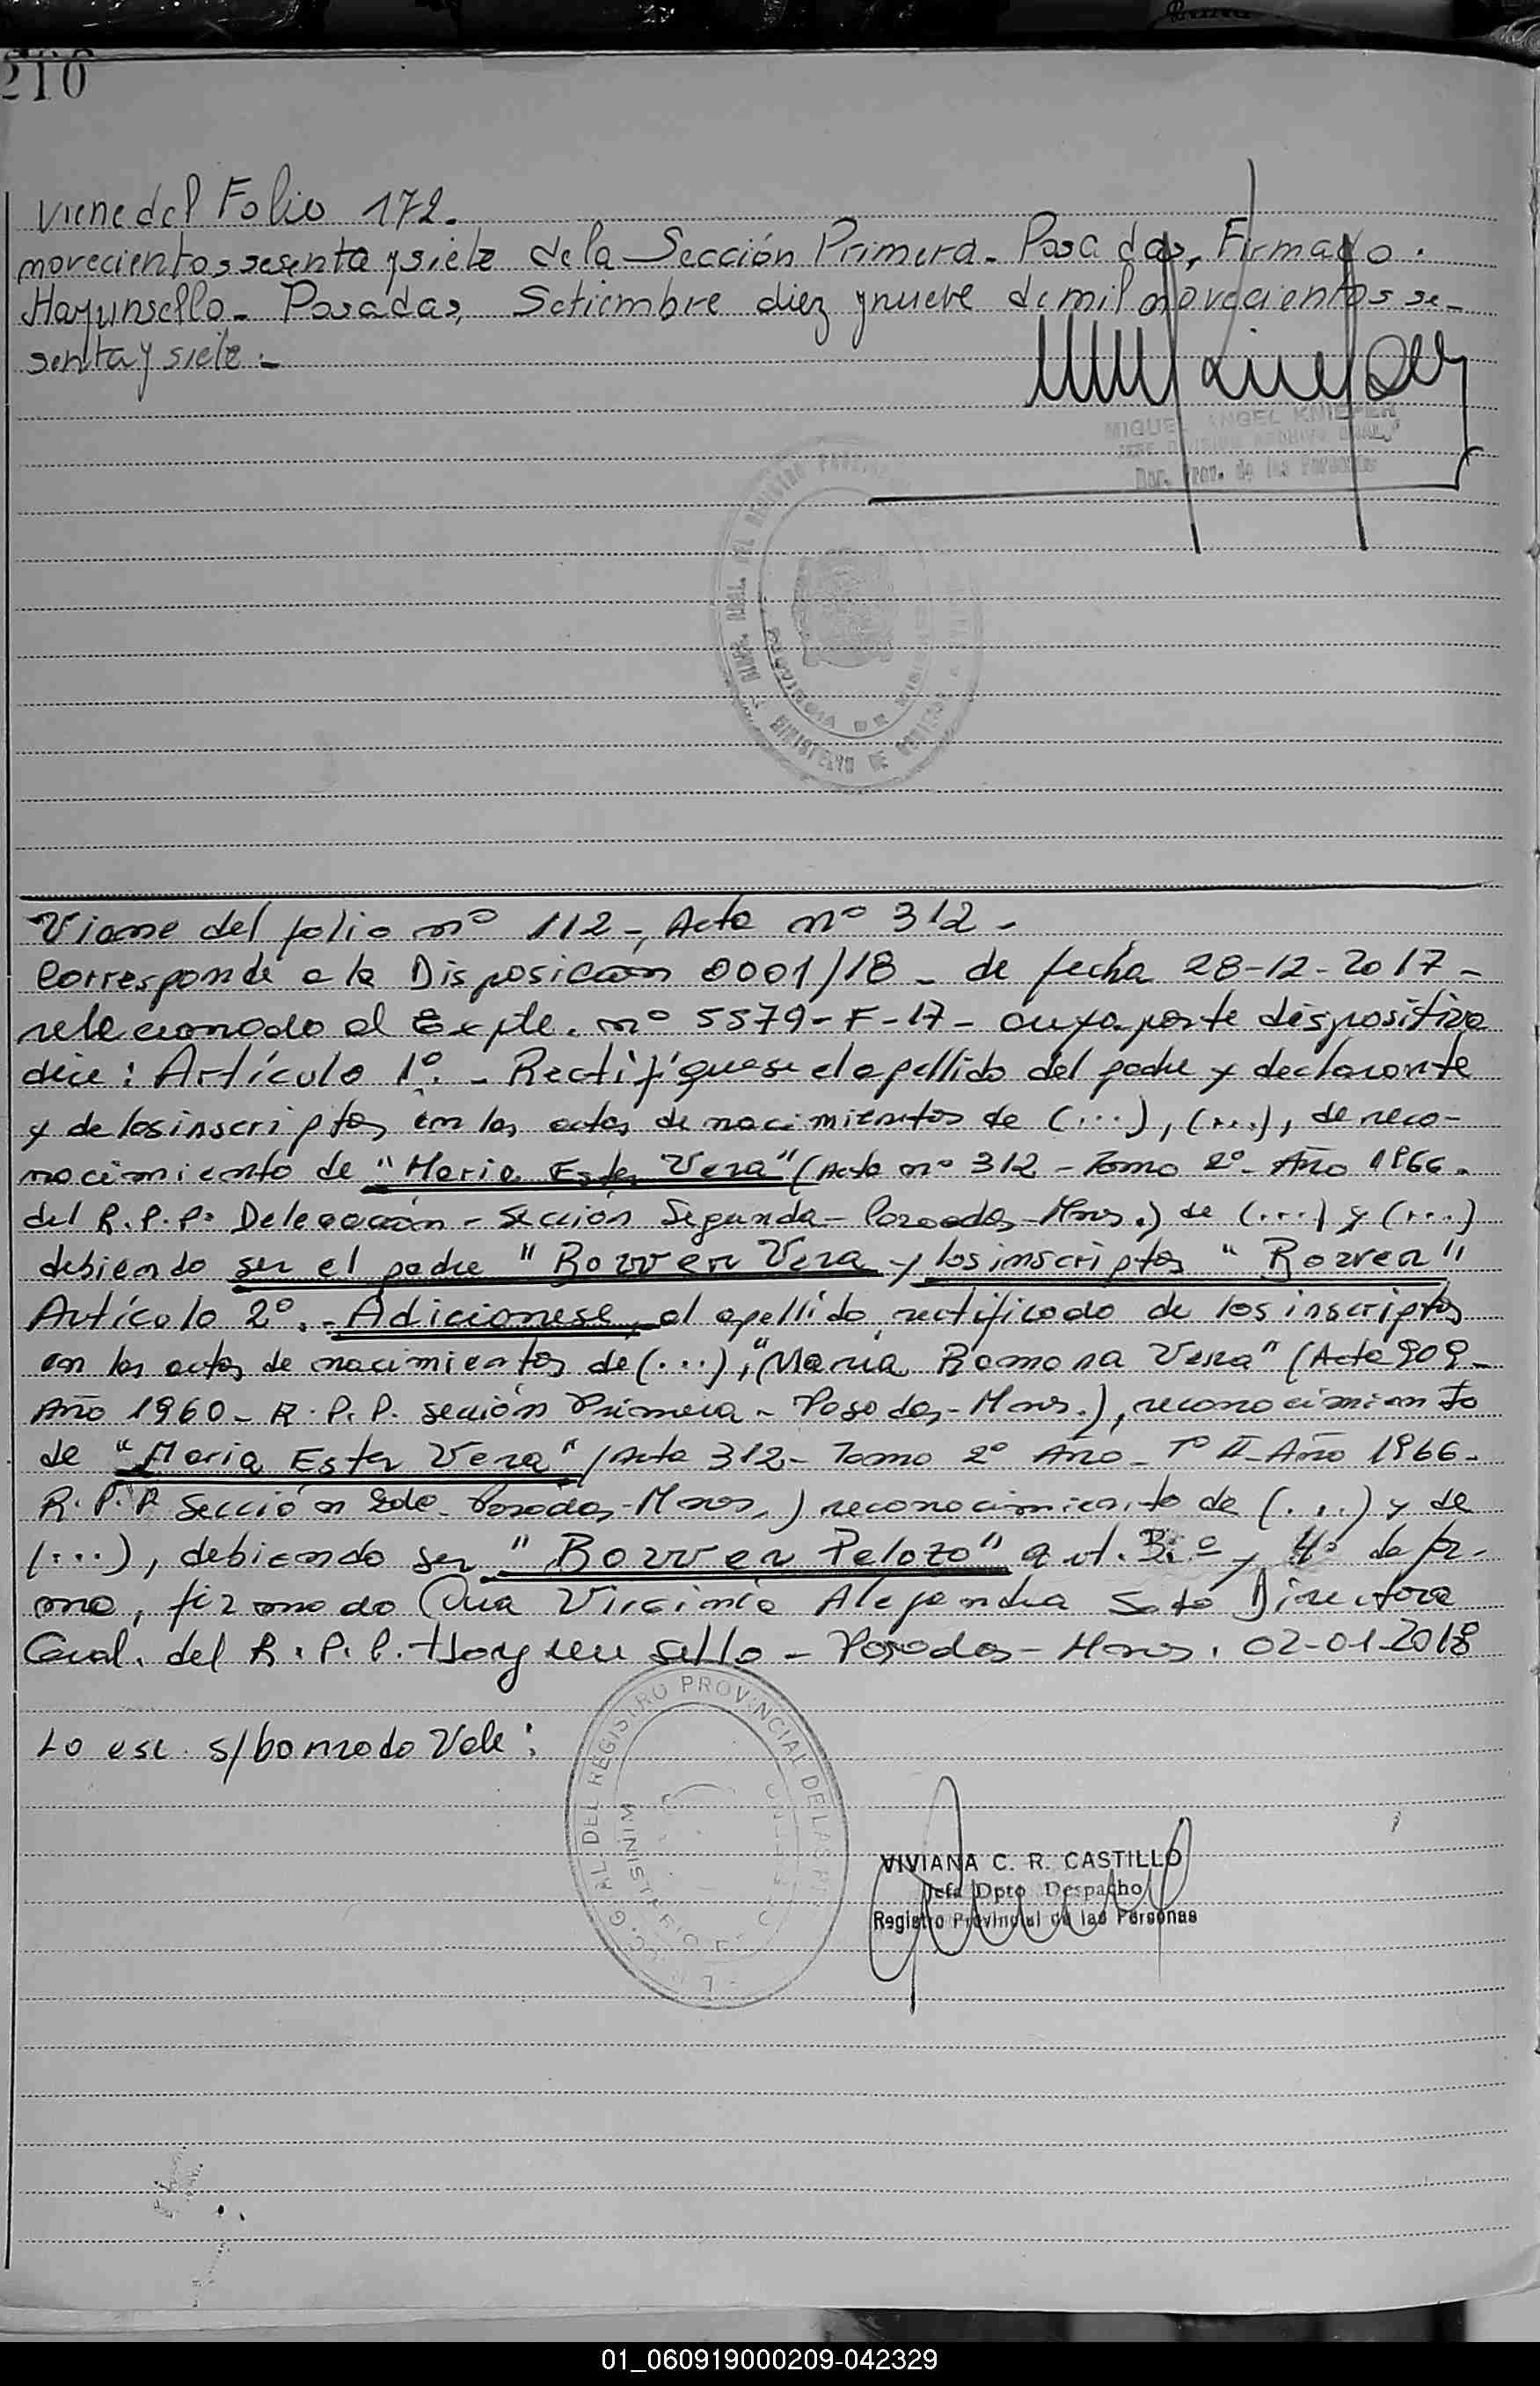 210
Viene del Folio 172.
novecientos sesenta y siete de la Sección Primera. Posadas, Firmado.
Hay un sello. Posadas, Setiembre diez y nueve de mil novecientos se-
senta y siete.-
MIGUEL ANGEL KNIEFER
Dir. Prov. de las Personas
PROVINCIA DE MISIONES
MINISTERIO DE
Viene del folio nº 112-, Acta nº 312.
Corresponde a la Disposición 0001/18 - de fecha 28-12-2017-
relacionado al Expte. nº 5579-F-17- cuya parte dispositiva
dice: Artículo 1º.- Rectifíquese el apellido del padre y declarante
y de los inscriptos en las actas de nacimientos de (...), (...), de reco-
nocimiento de "Maria Ester Vera" (Acta nº 312 - Tomo 2º- Año 1966.
del R.P.P. Delegación - Sección Segunda - Posadas - Mnes.) de (...) y (...)
debiendo ser el padre " Vera y los inscriptos "
Artículo 2º.- Adicionese, al apellido rectificado de los inscriptos
en las actas de nacimientos de (...), "Maria Ramona Vera" (Acta 909-
Año 1960- R.P.P. sección Primera - Posadas - Mnes.), reconocimiento
de "Maria Ester Vera" (Acta 312- Tomo 2º Año - Tº II- Año 1966-
R.P.P Sección 2da- Posadas - Mnes.) reconocimiento de (...) y de
(...), debiendo ser " Pelozo" art. 3º y 4º de for-
ma, firmado Virginia Alejandra Soto Directora
Gral. del R.P.P. Hay un sello - Posadas - Mnes. 02-01-2018
Lo esc. s/borrado Vale:
GRAL DEL REGISTRO PROVINCIAL DE LAS
MINISTERIO
VIVIANA C. R. CASTILLO
Jefa Dpto Despacho
Registro Provincial de las Personas
01_060919000209-042329